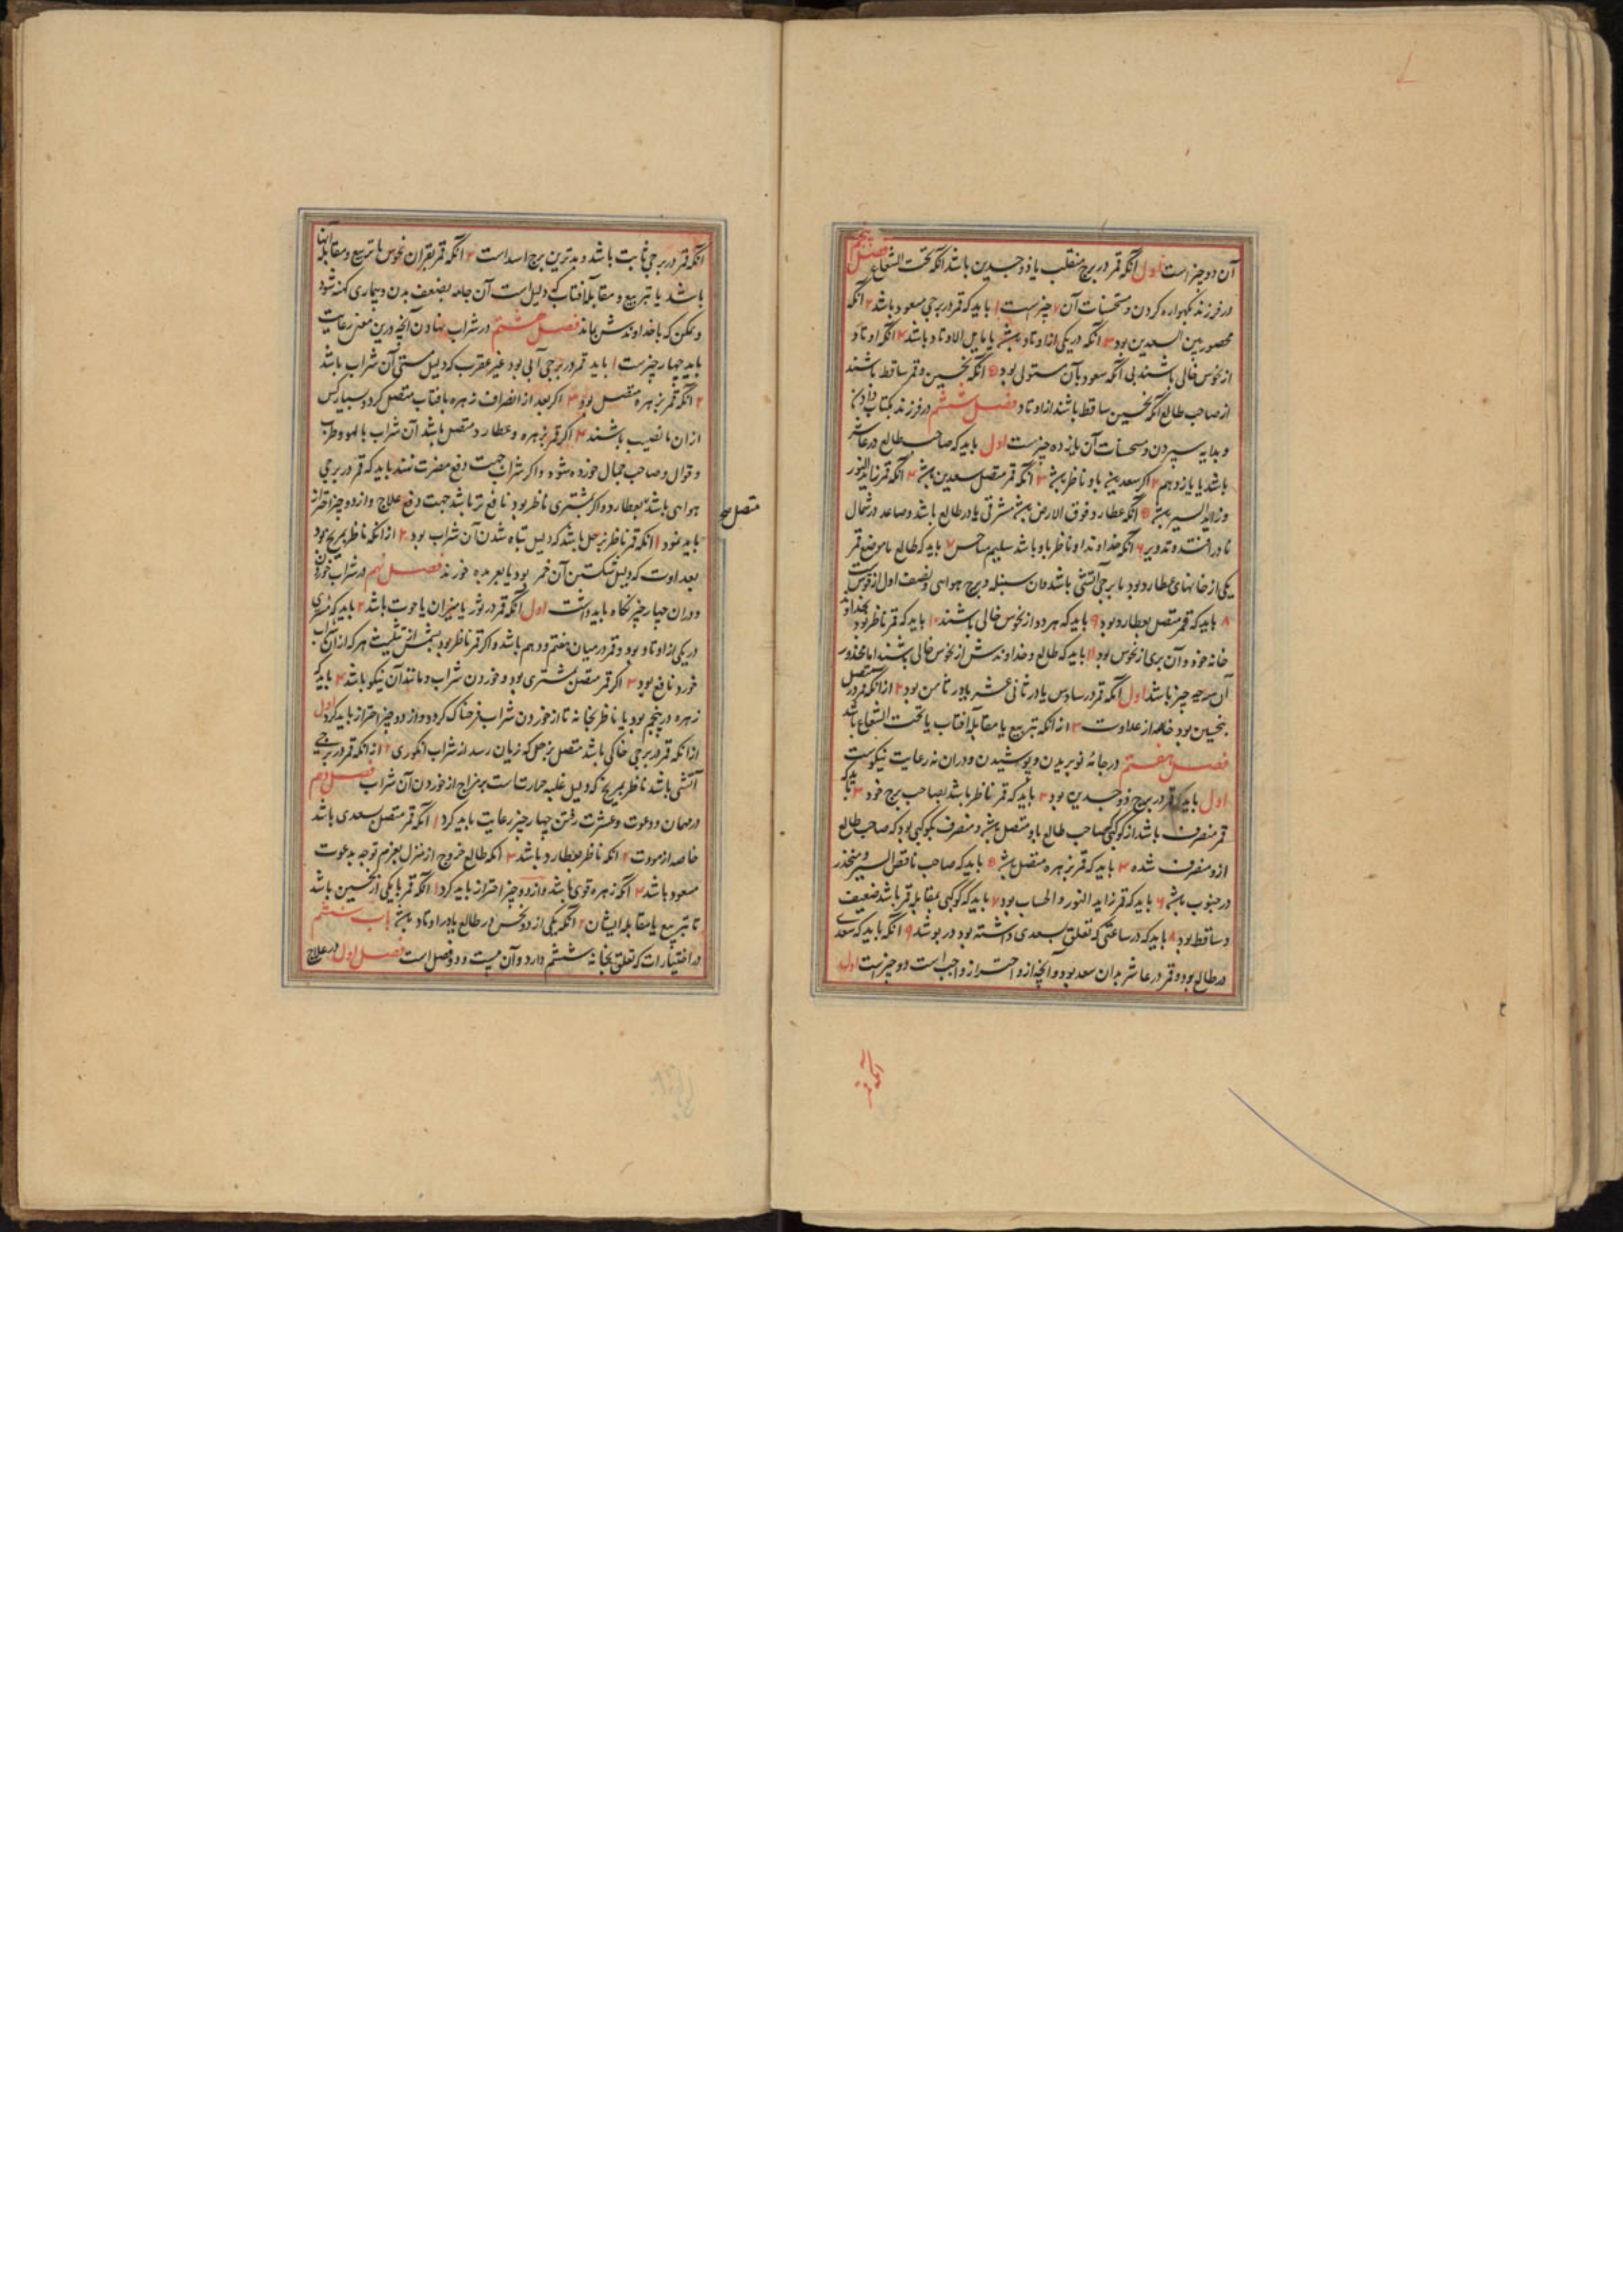 آن دو چیز است اول آنکه قمر در برج منقلب یا ذوجسدین باشد آنکه تحت الشعاع فصل پنجم
در فرزند بگهواره کردن و مستحسنات آن ۷ چیزست ۱ باید که قمر در برجی مسعود باشد ۲ آنکه
محصور بین السعدین بود ۳ آنکه در یکی از اوتاد باشد یا مایل الاوتاد باشد ۴ آنکه اوتاد
از نحوس خالی باشند بی آنکه سعود بآن مستولی بود ۵ آنکه نحسین و قمر ساقط باشند
از صاحب طالع آنکه نحسین ساقط باشند از اوتاد فصل ششم در فرزند بکتاب دادن
و بدایه سپردن و مستحسنات آن یازده چیزست اول باید که صاحب طالع در عاشر
باشد یا یازدهم ۲ اگر سعدین باو ناظر باشد ۳ آنکه قمر متصل بسعدین باشد ۴ آنکه قمر زاید النور
و زاید السیر باشد ۵ آنکه عطارد فوق الارض باشد مشرقی یا در طالع باشد و صاعد در شمال
نا در افتد و تدویر ۶ آنکه خداوند او ناظر باو باشد سلیم از نحس ۷ باید که طالع یا موضع قمر
یکی از خانهای عطارد بود یا برجی آتشی باشد و آن سنبله و برج هوایی و نصف اول از قوس است
۸ باید که قمر متصل بعطارد بود ۹ باید که هر دو از نحوس خالی باشند ۱۰ باید که قمر ناظر بود بخداوند
خانه خود و آن بری از نحوس بود ۱۱ باید که طالع و خداوندش از نحوس خالی باشند اما محذور
آن سه چیز باشد اول آنکه قمر در سادس یا در ثانی عشر یا در ثامن بود ۲ از آنکه قمر متصل
بنحسین بود خاصه از عداوت ۳ از آنکه تربیع یا مقابله آفتاب یا تحت الشعاع باشد
فصل هفتم در جامهٔ نو بریدن و پوشیدن و در آن نه رعایت نیکوست
اول باید که قمر در برج ذوجسدین بود ۲ باید که قمر ناظر باشد بصاحب برج خود ۳ باید که
قمر منصرف باشد از کوکبی صاحب طالع باو متصل باشد و منصرف بکوکبی بود که صاحب طالع
ازو منصرف شده ۴ باید که قمر بزهره متصل باشد ۵ باید که صاحب ناقص السیر و منحدر
در جنوب باشد ۶ باید که قمر زاید النور و الحساب بود ۷ باید که کوکبی بمقابله قمر باشد ضعیف
و ساقط بود ۸ باید که در ساعتی که تعلق بسعدی داشته بود در پوشد ۹ آنکه باید که سعدی
در طالع بود و قمر در عاشر بدان سعد بود و آنچه ازو احتراز واجب است دو چیز است اول
آنکه قمر
آنکه قمر در برجی ثابت باشد و بدترین برج اسد است ۲ آنکه قمر بقران نحوس یا تربیع و مقابله آنها
باشد یا تبربیع و مقابله آفتاب که دلیل است آن جامه بضعف بدن و بیماری کهنه شود
و ممکن که با خداوندش بماند فصل هشتم در شراب نهادن آنچه درین معنی رعایت
باید چهار چیزست ۱ باید قمر در برجی آبی بود غیر عقرب که دلیل مستی آن شراب باشد
۲ آنکه قمر بزهره متصل بود ۳ اگر بعد از انصراف زهره بافتاب متصل گردد بسیار کس
از آن با نصیب باشند ۴ اگر قمر بزهره و عطارد متصل باشد آن شراب با لهو و طرب
و قوال و صاحب جمال خورده شود و اگر شراب جهت دفع مضرت نهند باید که قمر در برجی
هوایی باشد بعطارد و اگر بمشتری ناظر بود نافع تر باشد جهت دفع علاج و از دو چیز احتراز
متصل
باید نمود ۱ آنکه قمر ناظر بزحل باشد که دلیل تباه شدن آن شراب بود ۲ از آنکه ناظر بمریخ بود
بعداوت که دلیل شکستن آن خمر بود یا بعربده خورند فصل نهم در شراب خوردن
و در آن چهار چیز نگاه باید داشت اول آنکه قمر در ثور یا میزان یا حوت باشد ۲ باید که مشتری
در یکی از اوتاد بود و قمر در میان هفتم و دهم باشد و اگر قمر ناظر بود بشمس از تثلیث هر که از آن شراب
خورد نافع بود ۳ اگر قمر متصل بمشتری بود و خوردن شراب و مانند آن نیکو باشد ۴ باید که
زهره در پنجم بود یا ناظر بخانه تا از خوردن شراب فرحناک گردد و از دو چیز احتراز باید کرد اول
از آنکه قمر در برجی خاکی باشد متصل بزحل که زیان رسد از شراب انگوری ۲ از آنکه قمر در برجی
آتشی باشد ناظر بمریخ که دلیل غلبه حرارتست بر مزاج از خوردن آن شراب فصل دهم
در مهمان و دعوت و عشرت رفتن چهار چیز رعایت باید کرد ۱ آنکه قمر متصل بسعدی باشد
خاصه از مودت ۲ آنکه ناظر بعطارد باشد ۳ آنکه طالع خروج از منزل بعزم توجه بدعوت
مسعود باشد ۴ آنکه زهره قوی باشد و از دو چیز احتراز باید کرد ۱ آنکه قمر با یکی از نحسین باشد
تا تبربیع یا مقابله ایشان ۲ آنکه یکی از دو نحس در طالع یا در اوتاد باشد باب ششم
در اختیارات که تعلق بخانه ششم دارد و آن بیست و دو فصل است فصل اول در علاج